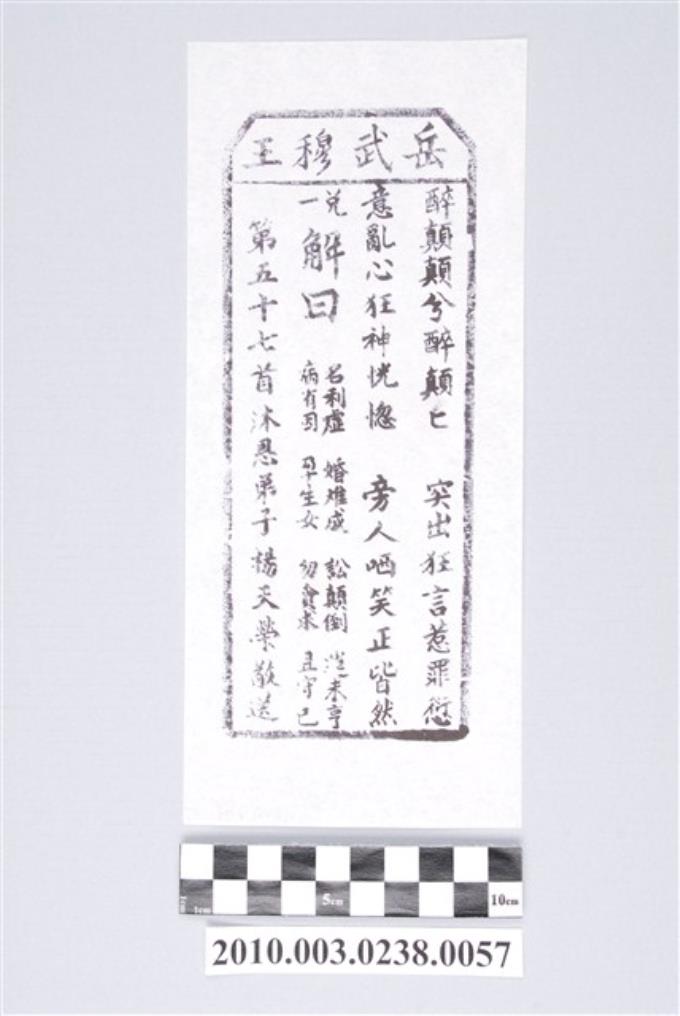 岳武穆王
醉顛顛兮醉顛匕 突出狂言惹罪愆
意亂心狂神恍惚 旁人哂笑正皆然
兑一 解曰
名利虛 婚难成 訟顛倒 運未亨
病有因 孕生女 勿貪求 且守己
第五十七首沐恩弟子楊天榮敬送
1cm
1cm
5cm
10cm
2010.003.0238.0057